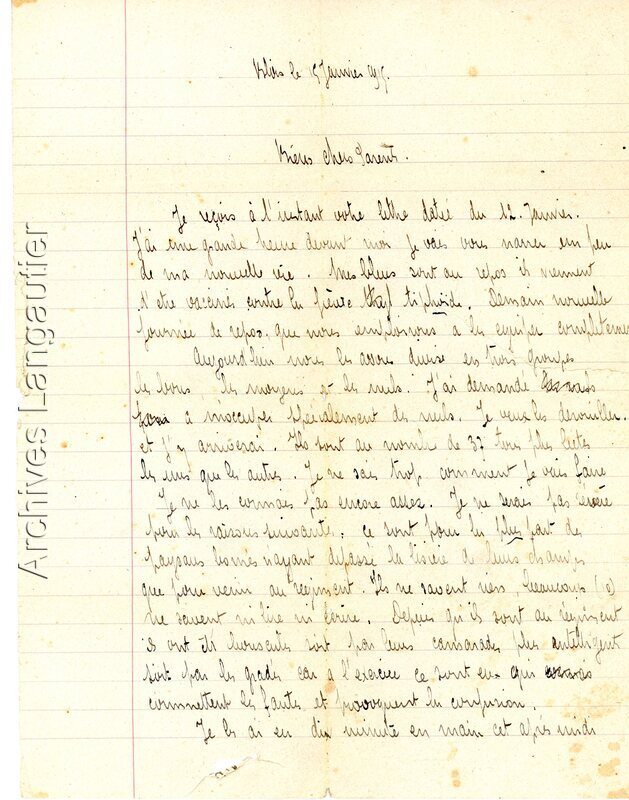 Blois le 15 Janvier 1915.
Biens chers Parents.
Je reçois à l'instant votre lettre datée du 12 Janvier.
J'ai une grande heure devant moi je vais vous narrer un peu
de ma nouvelle vie. Mes bleus sont au repos ils viennent
d'etre vaccinés contre la fièvre tiphoide. Demain nouvelle
journée de repos, que nous emploierons a les equiper completement
Aujourd'hui nous les avons divisé en trois groupes
les bons, les moyens et les nuls. J'ai demandé
a m'occuper spécialement des nuls. Je veux les derouiller
et j'y arriverai. Ils sont au nombre de 37 tous plus bêtes
les uns que les autres. Je ne sais trop comment je vais faire
Je ne les connais pas encore assez. Je ne serais pas sévère
pour les raisons suivantes, ce sont pour la plus part de
paysans bornés n'ayant dépassé la lisière de leurs champs
que pour venir au régiment. Ils ne savent rien, beaucoup (10)
ne savent ni lire ni écrire. Depuis qu'il sont au régiment
ils ont été houspillés soit par leurs camarades plus intelligent
soit par les gradés car a l'exercice ce sont eux qui
commettent les fautes et provoquent la confusion.
Je les ai eu dix minute en main cet après midi
Archives Langautier